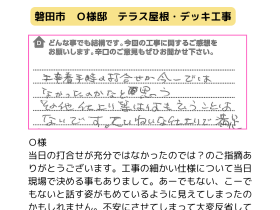 磐田市　O様邸　テラス屋根・デッキ工事
どんな事でも結構です。今回の工事に関するご感想を
お願いします。辛口のご意見もぜひお聞かせ下さい。
工事着手時の打合せが今一では
なかったのかなと思う
その他仕上り等はもう言うことは
ないです。ていねいな仕上りで満足
O様
当日の打合せが充分ではなかったのでは？のご指摘あ
りがとうございます。工事の細かい仕様について当日
現場で決める事もありまして。あーでもない、こーで
もないと話す姿がもめているように見えてしまったの
かもしれません。不安にさせてしまって大変反省して